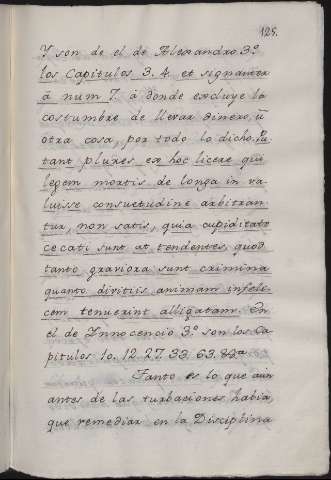 125.
Y son de el de Alexandro 3º
los Capitulos 3. 4. et signanter
á num 7. á donde excluye la
costumbre de llevar dinero, ú
otra cosa, por todo lo dicho. Pu
tant plures ex hoc licere quia
legem mortis de longa in va
luisse consuetudine arbitran
tur, non satis, quia cupiditate
cecati sunt at tendentes, quod
tanto graviora sunt crimina
quanto diutiis animam infeli
cem tenuerint alligatam. En
el de Innocencio 3º son los Ca
pitulos 10. 12 27. 33 63. 83ª
Tanto es lo que aun
antes de las turbaciones habia
que remediar en la Disciplina